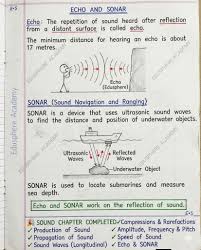 E-5
ECHO AND SONAR
Echo : The repetition of sound heard after reflection
from a distant surface is called echo.
The minimum distance for hearing an echo is about
17 metres.
Echo
(Edusphere)
SONAR (Sound Navigation and Ranging)
SONAR is a device that uses ultrasonic sound waves
to find the distance and position of underwater objects.
Ultrasonic
Waves
Reflected
Waves
Underwater Object
SONAR is used to locate submarines and measure
sea depth.
Echo and SONAR work on the reflection of sound.
E-5
SOUND CHAPTER COMPLETED
✓ Production of Sound
✓ Propagation of Sound
✓ Sound Waves (Longitudinal)
✓ Compressions & Rarefactions
✓ Amplitude, Frequency & Pitch
✓ Speed of Sound
✓ Echo & SONAR
Edusphere Academy